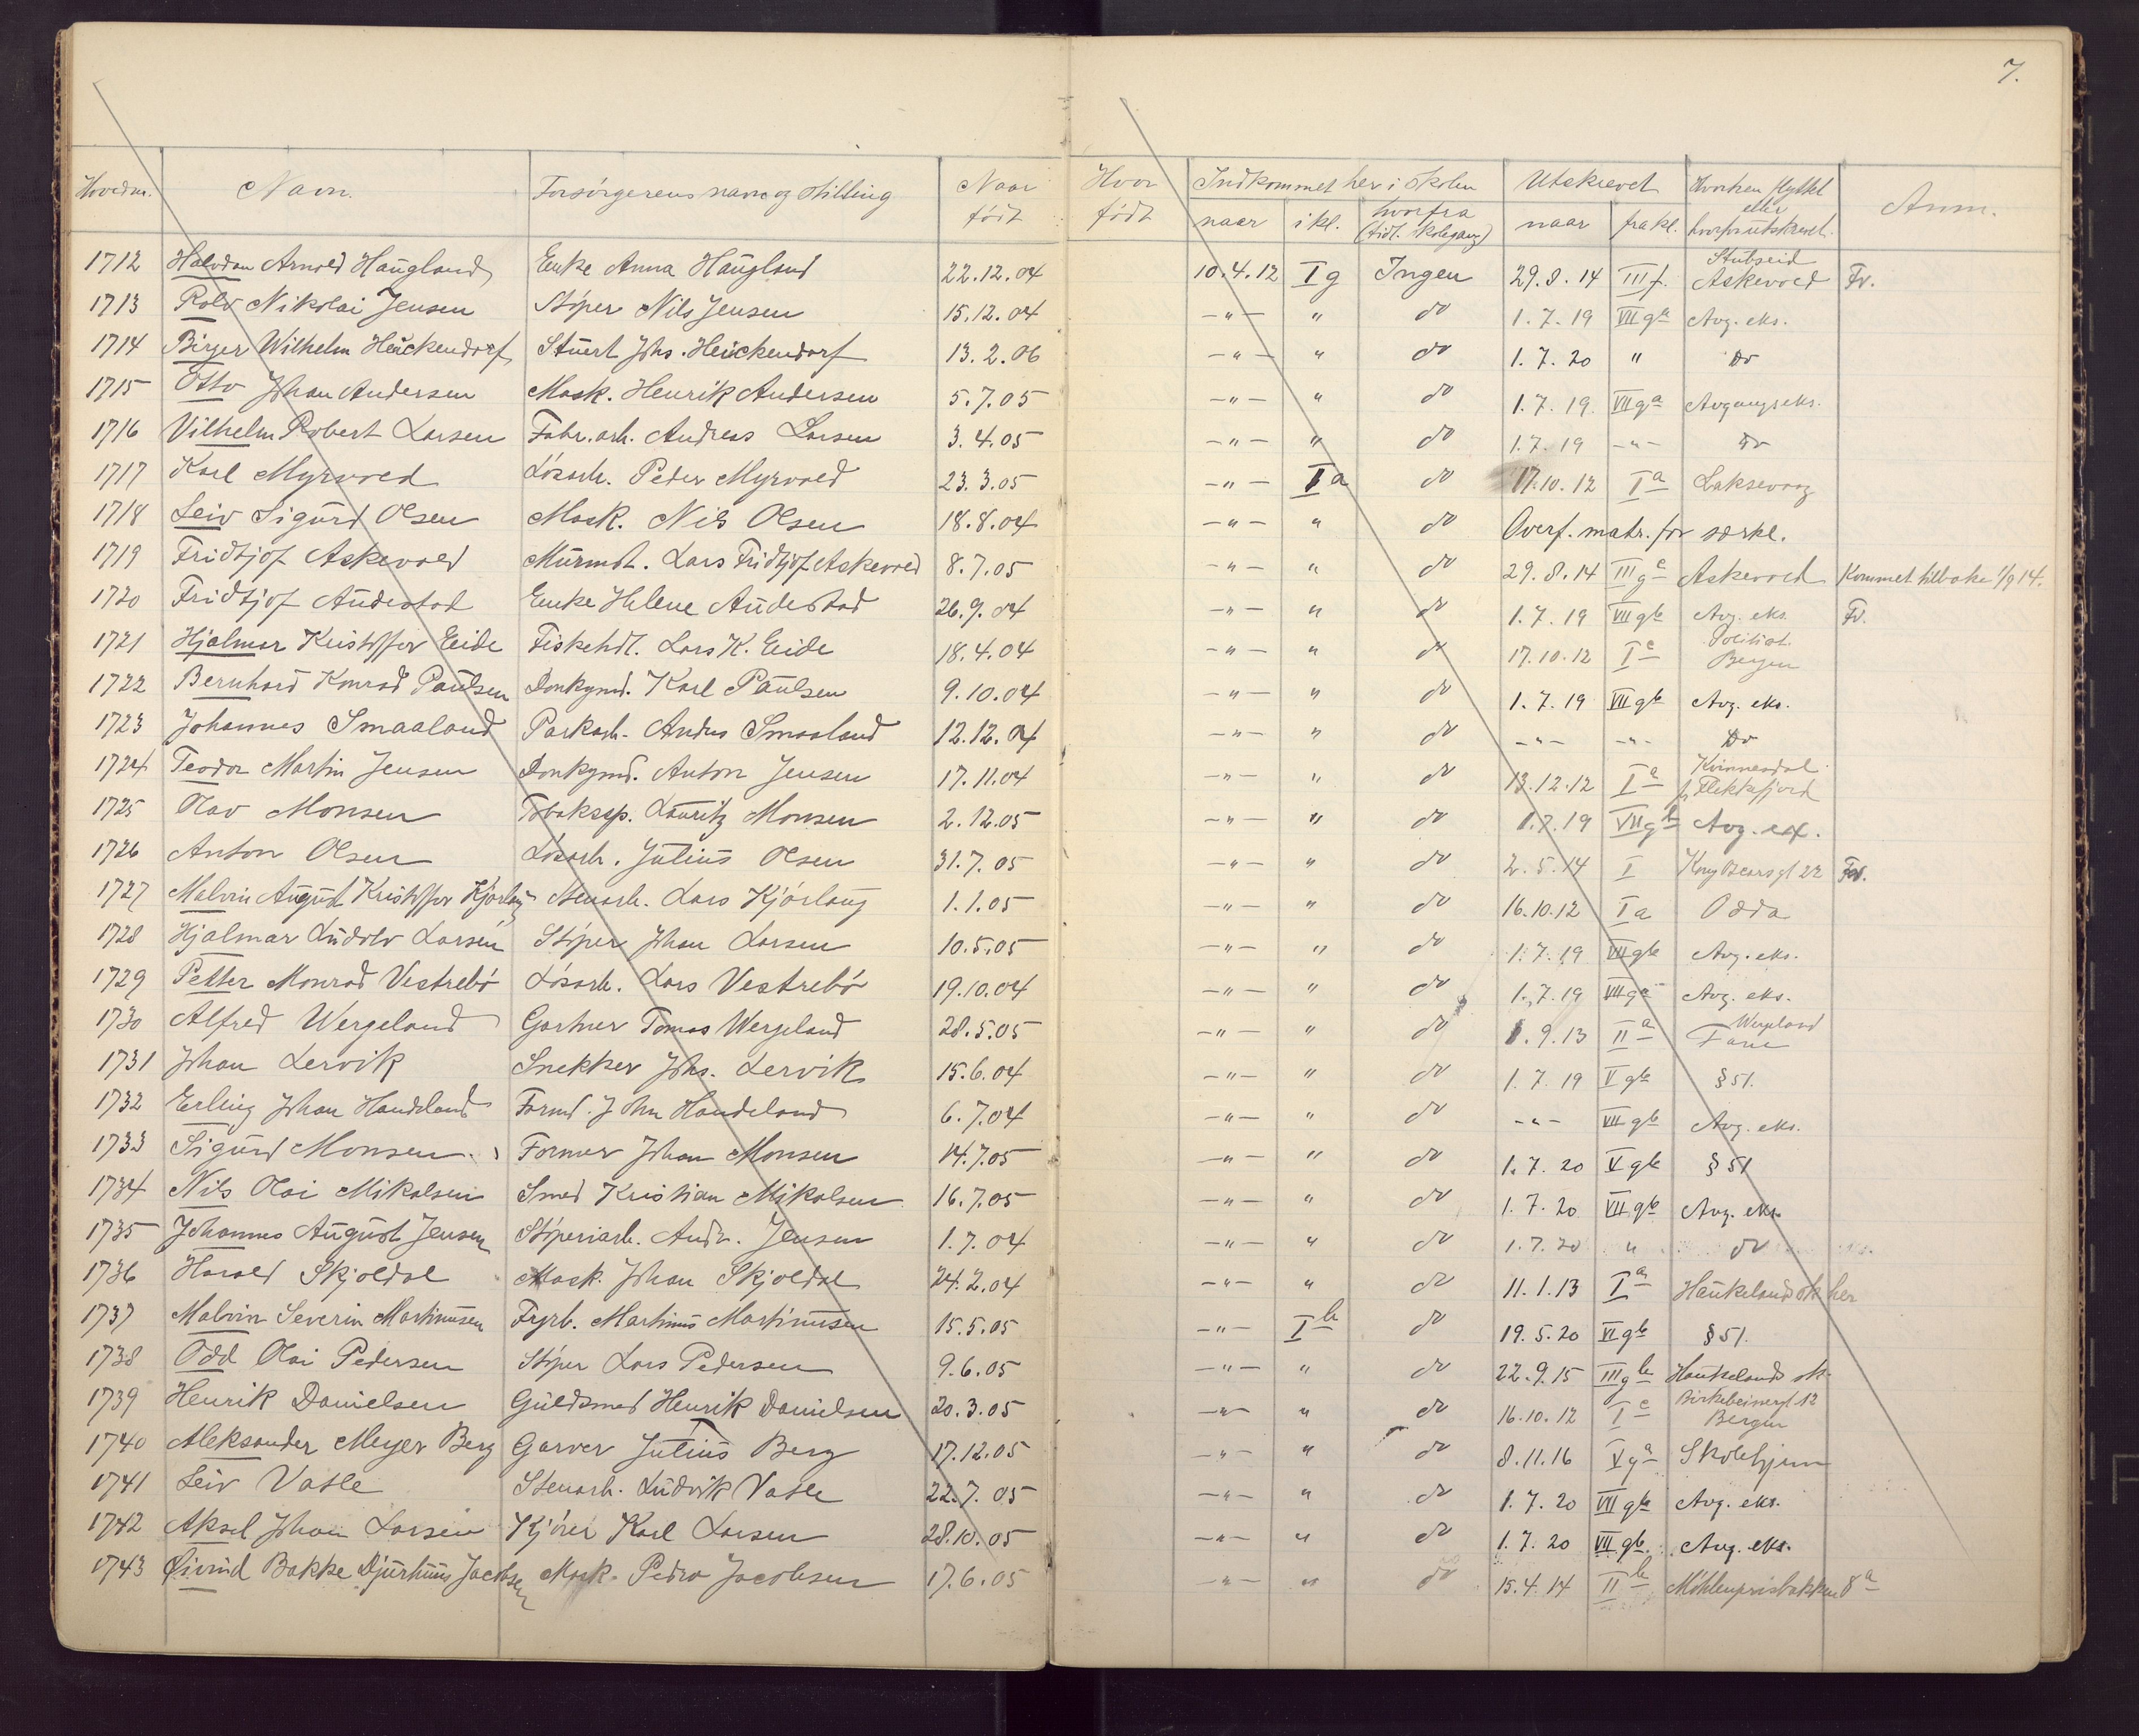 7.
Hovednr. Navn. Forsörgerens navn og stilling Naar födt Hvor födt Indkommet her i skolen naar i kl. hvorfra (tidl. skolegang) Utskrevet naar fra kl. Hvorhen flyttet eller hvorfor utskrevet. Anm.
1712 Halvdan Arnold Haugland Enke Anna Haugland 22.12.04 10.4.12 I g Ingen 29.8.14 III f. Stubseid Askevold Fr.
1713 Rolv Nikolai Jensen Stöper Nils Jensen 15.12.04 -"- " do 1.7.19 VII ga Avg. eks.
1714 Birger Wilhelm Heuckendorf Stuert Johs. Heuckendorf 13.2.06 -"- " do 1.7.20 " Do
1715 Otto Johan Andersen Mask. Henrik Andersen 5.7.05 -"- " do 1.7.19. VII ga Avgangseks.
1716 Vilhelm Robert Larsen Fabr.arb. Andreas Larsen 3.4.05 -"- " do 1.7.19 -"- Do
1717 Karl Myrvold Lösarb. Peder Myrvold 23.3.05 -"- I a do 17.10.12 I a Laksevaag
1718 Leiv Sigurd Olsen Mask. Nils Olsen 18.8.04 -"- " do Overf. matr. for særkl.
1719 Fridtjof Askevold Murmst. Lars Fridtjof Askevold 8.7.05 -"- " do 29.8.14 III g c Askevold Kommet tilbake 1/9 14.
1720 Fridtjof Audestad Enke Helene Audestad 26.9.04 -"- " do 1.7.19 VII gb Avg. eks. Fr.
1721 Hjalmar Kristoffer Eide Fiskehdl. Lars K. Eide 18.4.04 -"- " do 17.10.12 I c Solitist. Bergen
1722 Bernhard Konrad Paulsen Donkymd. Karl Paulsen 9.10.04 -"- " do 1.7.19 VII gb Avg. eks.
1723 Johannes Smaaland Parkarb. Andus Smaaland 12.12.04 -"- " do -"- -"- Do
1724 Teodor Martin Jensen Donkymd. Anton Jensen 17.11.04 -"- " do 13.12.12 I a Kvinnesdal p. Flekkefjord
1725 Olav Monsen Tobaksp. Lauritz Monsen 2.12.05 -"- " do 1.7.19 VII gb Avg. ex.
1726 Anton Olsen Lösarb. Julius Olsen 31.7.05 -"- " do 2.5.14 I Kong Oscars gt 22 For.
1727 Malvin August Kristoffer Kjörlaug Stenarb. Lars Kjörlaug 1.1.05 -"- " do 16.10.12 I a Odda
1728 Hjalmar Ludolv Larsen Stöper Johan Larsen 10.5.05 -"- " do 1.7.19 VII gb Avg. eks.
1729 Petter Monrad Vestrebö Lösarb. Lars Vestrebö 19.10.04 -"- " do 1.7.19 VII ga Avg. eks.
1730 Alfred Wergeland Gartner Tomas Wergeland 28.5.05 -"- " do 1.9.13 II a Wergeland Fane
1731 Johan Lervik Snekker Johs. Lervik 15.6.04 -"- " do 1.7.19 V gb § 51.
1732 Erling Johan Handeland Formd. John Handeland 6.7.04 -"- " do -"- VII gb Avg. eks.
1733 Sigurd Monsen Former Johan Monsen 14.7.05 -"- " do 1.7.20 V gb § 51
1734 Nils Olai Mikalsen Smed Kristian Mikalsen 16.7.05 -"- " do 1.7.20 VII gb Avg. eks.
1735 Johannes August Jensen Stöperiarb. Andr. Jensen 1.7.04 -"- " do 1.7.20 " do
1736 Harald Skjoldal Mask. Johan Skjoldal 24.2.04 -"- " do 11.1.13 I a Haukeland sk her
1737 Malvin Severin Martinusen Fyrb. Martinus Martinusen 15.5.05 -"- I b do 19.5.20 VI gb § 51.
1738 Odd Olai Pedersen Stöper Lars Pedersen 9.6.05 -"- " do 22.9.15 III g b Haukelands sk.
1739 Henrik Danielsen Guldsmed Henrik Danielsen 20.3.05 -"- " do 16.10.12 I c Birkebeinergt 12 Bergen
1740 Aleksander Meyer Berg Garver Julius Berg 17.12.05 -"- " do 8.11.16 V g a Skolehjem
1741 Leiv Vatle Stenarb. Ludvik Vatle 22.7.05 -"- " do 1.7.20 VII gb Avg. eks.
1742 Aksel Johan Larsen Kjörer Karl Larsen 28.10.05 -"- " do 1.7.20 VII gb. Avg. eks.
1743 Øivind Bakke Djurhuus Jacobsen Mask. Pedro Jacobsen 17.6.05 -"- " do 15.4.14 II b Möhlenprisbakken 8 a